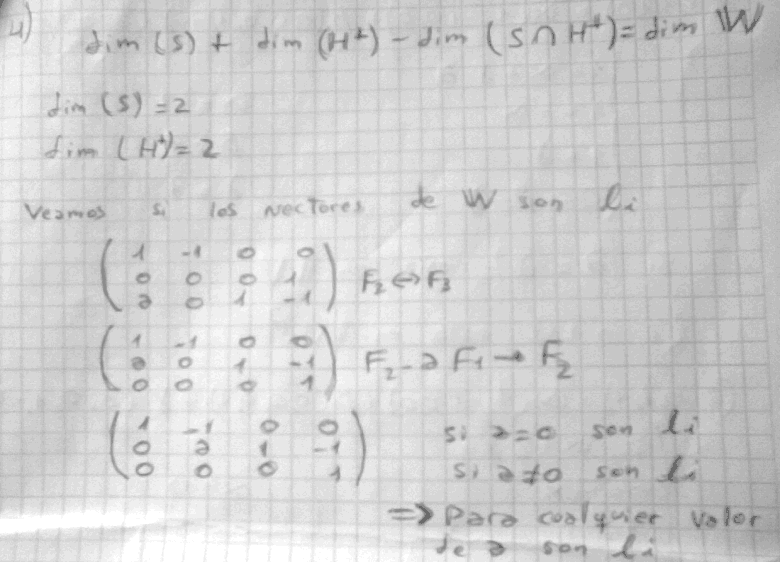 4) dim (S) + dim (H⊥) - dim (S ∩ H⊥) = dim W
dim (S) = 2
dim (H⊥) = 2
Veamos si los vectores de W son li
( 1 -1 0 0
0 0 0 1
a 0 1 -1 ) F2 ↔ F3
( 1 -1 0 0
a 0 1 -1
0 0 0 1 ) F2 - a F1 → F2
( 1 -1 0 0
0 a 1 -1
0 0 0 1 )
si a=0 son li
si a≠0 son li
=> Para cualquier valor
de a son li